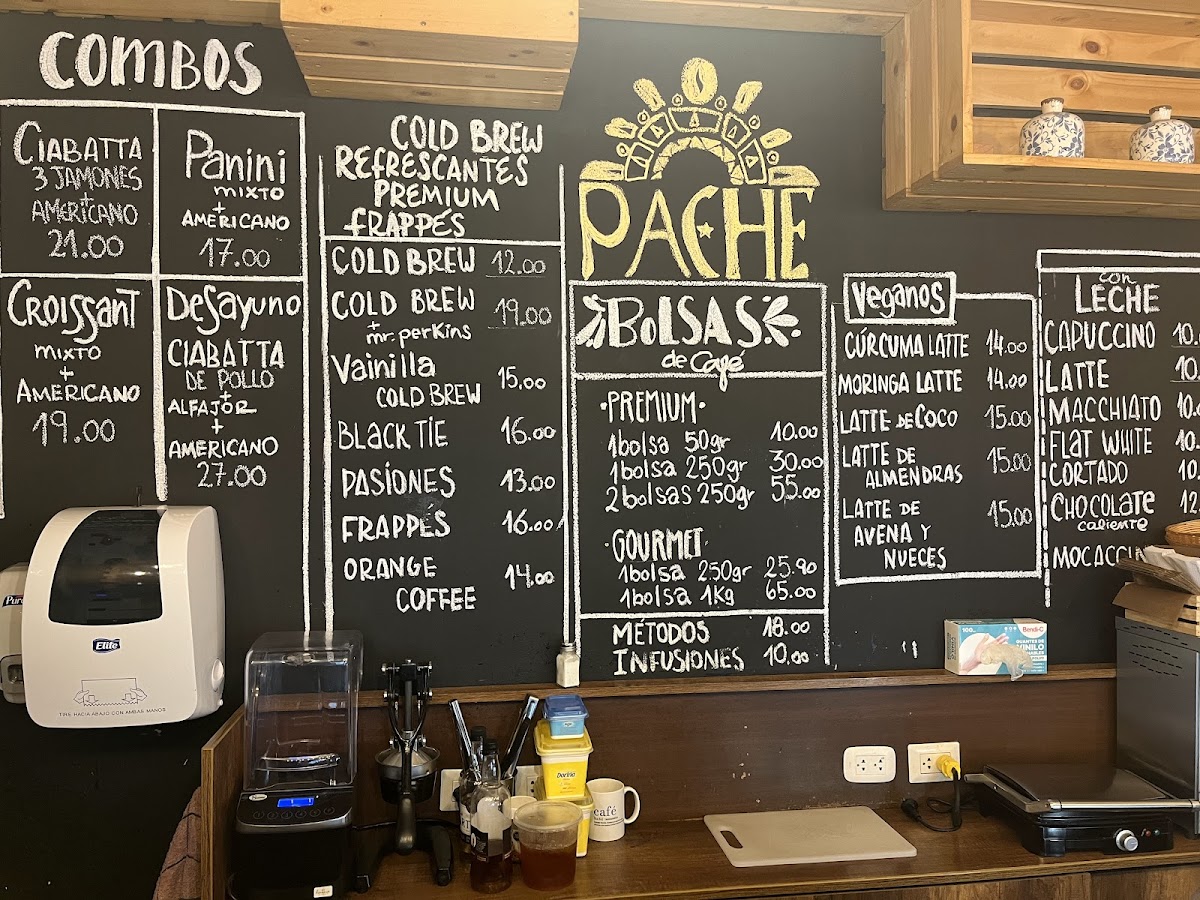 COMBOS
CIABATTA
3 JAMONES
+
AMERICANO
21.00
Panini
MIXTO
+
AMERICANO
17.00
CROISSANT
MIXTO
+
AMERICANO
19.00
DESAYUNO
CIABATTA
DE POLLO
+
ALFAJOR
+
AMERICANO
27.00
COLD BREW
REFRESCANTES
PREMIUM
FRAPPÉS
COLD BREW 12.00
COLD BREW 19.00
+
mr. perkins
Vainilla 15.00
COLD BREW
BLACK TÍE 16.00
PASÍONES 13.00
FRAPPÉS 16.00
ORANGE 14.00
COFFEE
PACHE
BOLSAS
de Café
·PREMIUM·
1 bolsa 50gr 10.00
1 bolsa 250gr 30.00
2 bolsas 250gr 55.00
·GOURMET·
1 bolsa 250gr 25.90
1 bolsa 1Kg 65.00
MÉTODOS 18.00
INFUSIONES 10.00
Veganos
CÚRCUMA LATTE 14.00
MORINGA LATTE 14.00
LATTE DE COCO 15.00
LATTE DE 15.00
ALMENDRAS
LATTE DE 15.00
AVENA Y
NUECES
con
LECHE
CAPUCCINO 10.
LATTE 10.
MACCHIATO 10.
FLAT WHITE 10.
CORTADO 10
CHOCOLATE 12.
caliente
MOCACCIN
Pure
Elite
TIRE HACIA ABAJO CON AMBAS MANOS
100
Bendi-C
GUANTES DE
VINILO
Dorina
café